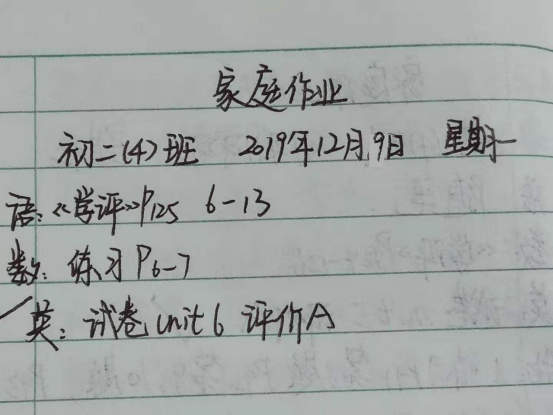 家庭作业
初二(4)班 2019年12月9日 星期一
语:《学评》P125 6-13
数:练习P6-7
英:试卷unit 6 评价A